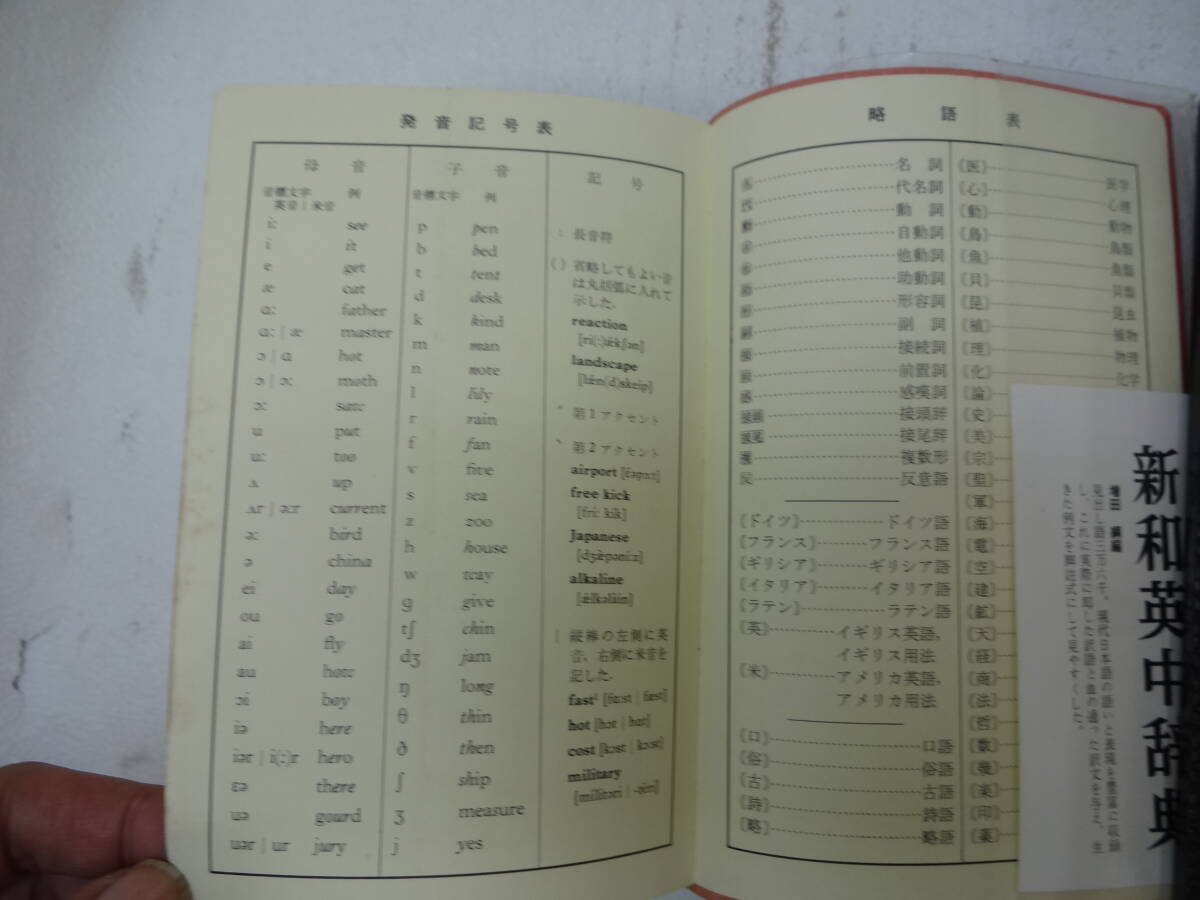 発音記号表
母音
音標文字 例
英音 | 米音
iː see
i it
e get
æ cat
ɑː father
ɑː | æ master
ɔ | ɑ hot
ɔ | ɔː moth
ɔː saw
u put
uː too
ʌ up
ʌr | əːr current
əː bird
ə china
ei day
ou go
ai fly
au how
ɔi boy
iə here
iər | i(ː)r hero
ɛə there
uə gourd
uər | ur jury
子音
音標文字 例
p pen
b bed
t tent
d desk
k kind
m man
n note
l lily
r rain
f fan
v five
s sea
z zoo
h house
w way
g give
tʃ chin
dʒ jam
ŋ long
θ thin
ð then
ʃ ship
ʒ measure
j yes
記号
ː 長音符
( ) 省略してもよい音
は丸括弧に入れて
示した.
reaction
[ri(ː)ǽkʃən]
landscape
[lǽn(d)skeip]
´ 第1アクセント
` 第2アクセント
airport
free kick
[fríː kìk]
Japanese
[dʒæ̀pəníːz]
alkaline
[ǽlkəlàin]
| 縦棒の左側に英
音, 右側に米音を
記した.
fast¹ [fɑːst | fæst]
hot [hɔt | hɑt]
cost [kɔst | kɔːst]
military
略語表
名詞
代名詞
動詞
自動詞
他動詞
助動詞
形容詞
副詞
接続詞
前置詞
感嘆詞
接頭辞
接尾辞
複数形
反意語
〘ドイツ〙 ドイツ語
〘フランス〙 フランス語
〘ギリシア〙 ギリシア語
〘イタリア〙 イタリア語
〘ラテン〙 ラテン語
〘英〙 イギリス英語,
イギリス用法
〘米〙 アメリカ英語,
アメリカ用法
〘口〙 口語
〘俗〙 俗語
〘古〙 古語
〘詩〙 詩語
〘略〙 略語
〘医〙 医学
〘心〙 心理
〘動〙 動物
〘鳥〙 鳥類
〘魚〙 魚類
〘貝〙 貝類
〘昆〙 昆虫
〘植〙 植物
〘理〙 物理
〘化〙 化学
〘論〙
〘史〙
〘美〙
〘宗〙
〘聖〙
〘軍〙
〘海〙
〘電〙
〘空〙
〘建〙
〘鉱〙
〘天〙
〘経〙
〘商〙
〘法〙
〘哲〙
〘数〙
〘幾〙
〘楽〙
〘印〙
〘薬〙
新和英中辞典
増田 綱編
見出し語三万六千。現代日本語の語いと表現を豊富に収録
し、これに実際に即した訳語と血の通った訳文を与え、生
きた例文を脚註式にして見やすくした。